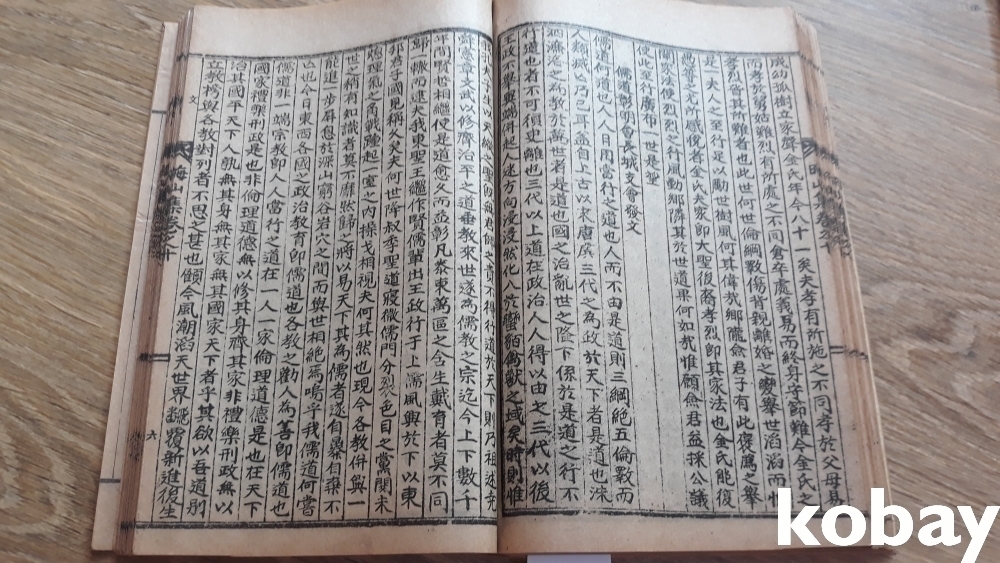 成幼孤樹立家聲金氏年今八十一矣夫孝有所施之不同孝於父母易
而孝於舅姑難烈有所處之不同倉卒處義易而終身守節難今金氏之
孝烈皆其所難者也此世何世倫綱斁傷背親離婚之變擧世滔滔而
是一夫人之至行足以勵世樹風何其偉哉鄕僉君子有此褒薦之擧
爲善之尤所感後者金氏夫家即大聖後裔孝烈即其家法也金氏能復
使烈烈之行風動鄕隣其於世道果何如哉惟願僉君益採公議
使此至行廣布一世是望
儒道彰明會長城支會發文
儒道何道也人人日用當行之道也人而不由是道則三綱絶五倫斁而
人類滅乃已耳盖自上古以來唐虞三代之爲政於天下者是道也洙
泗濂洛之爲敎於萬世者是道也國之治亂世之隆下係於是道之行不
行道也者不可須臾離也三代以上道在政治人人得以由之三代以後
政不擧異端倂起人迷方向浸浸然化入於蠻貊禽獸之域矣時則惟
不得行道於天下則乃祖述堯
舜憲章文武以修齊治平之道垂敎來世遂爲儒敎之宗迄今上下數千
年間賢哲相繼使是道愈久而益彰凡泰東萬區之含生戴育者莫不同
歸一轍而逮夫我東聖王繼作賢儒輩出王政行于上儒風興於下以東
邦君子國見稱久矣夫何世降叔季聖道寢微儒門分裂色目之黨閧未
蠻觸之角戟隆起一室之內操戈相視夫何其然也現今各敎倂興一
世之稍有知識者莫不靡狀歸之將以易天下其爲儒者遂自暴自棄不
能進一步屛息於深山窮谷岩穴之間而與世相絶焉嗚乎我儒道何嘗
凶也今日東西各國之政治敎育即儒道也各敎之勸人爲善即儒道也
儒道非一端宗敎即人人當行之道在一人一家倫理道德是也在天下
國家禮樂刑政是也非倫理道德無以修其身齊其家非禮樂刑政無以
治其國平天下人孰無其身無其家無其國家天下者乎其欲以吾道別
立敎務與各敎對列者不思之甚也顧今風潮滔天世界飜覆新進後生
文
梅山集卷之十
六
kobay